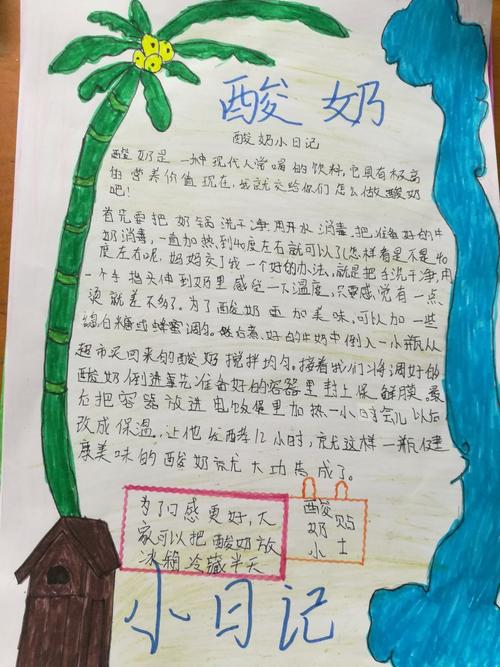 酸奶
酸奶小日记
酸奶是一种现代人常喝的饮料,它具有极高
的营养价值现在,我就交给你们怎么做酸奶
吧!
首先要把奶锅洗干净用开水消毒.把准备好的牛
奶消毒,一直加热到40度左右就可以了(怎样看是不是40
度左右呢,妈妈交了我一个好的办法,就是把手洗干净,用
一个手指头伸到奶里感觉一下温度,只要感觉有一点
烫就差不多了。为了酸奶更加美味,可以加一些
绵白糖或蜂蜜调匀。然后春好的牛奶中倒入一小瓶从
超市买回来的酸奶搅拌均匀。接着我们将调好的
酸奶倒进事先准备好的容器里封上保鲜膜最
后把容器放进电饭煲里加热一小时会儿以后
改成保温。让他发酵12小时,京尤这样一瓶健
康美味的酸奶京尤大功告成了。
为了口感更好,大
家可以把酸奶放
冰箱冷藏半天
酸
奶贴
小士
小日记